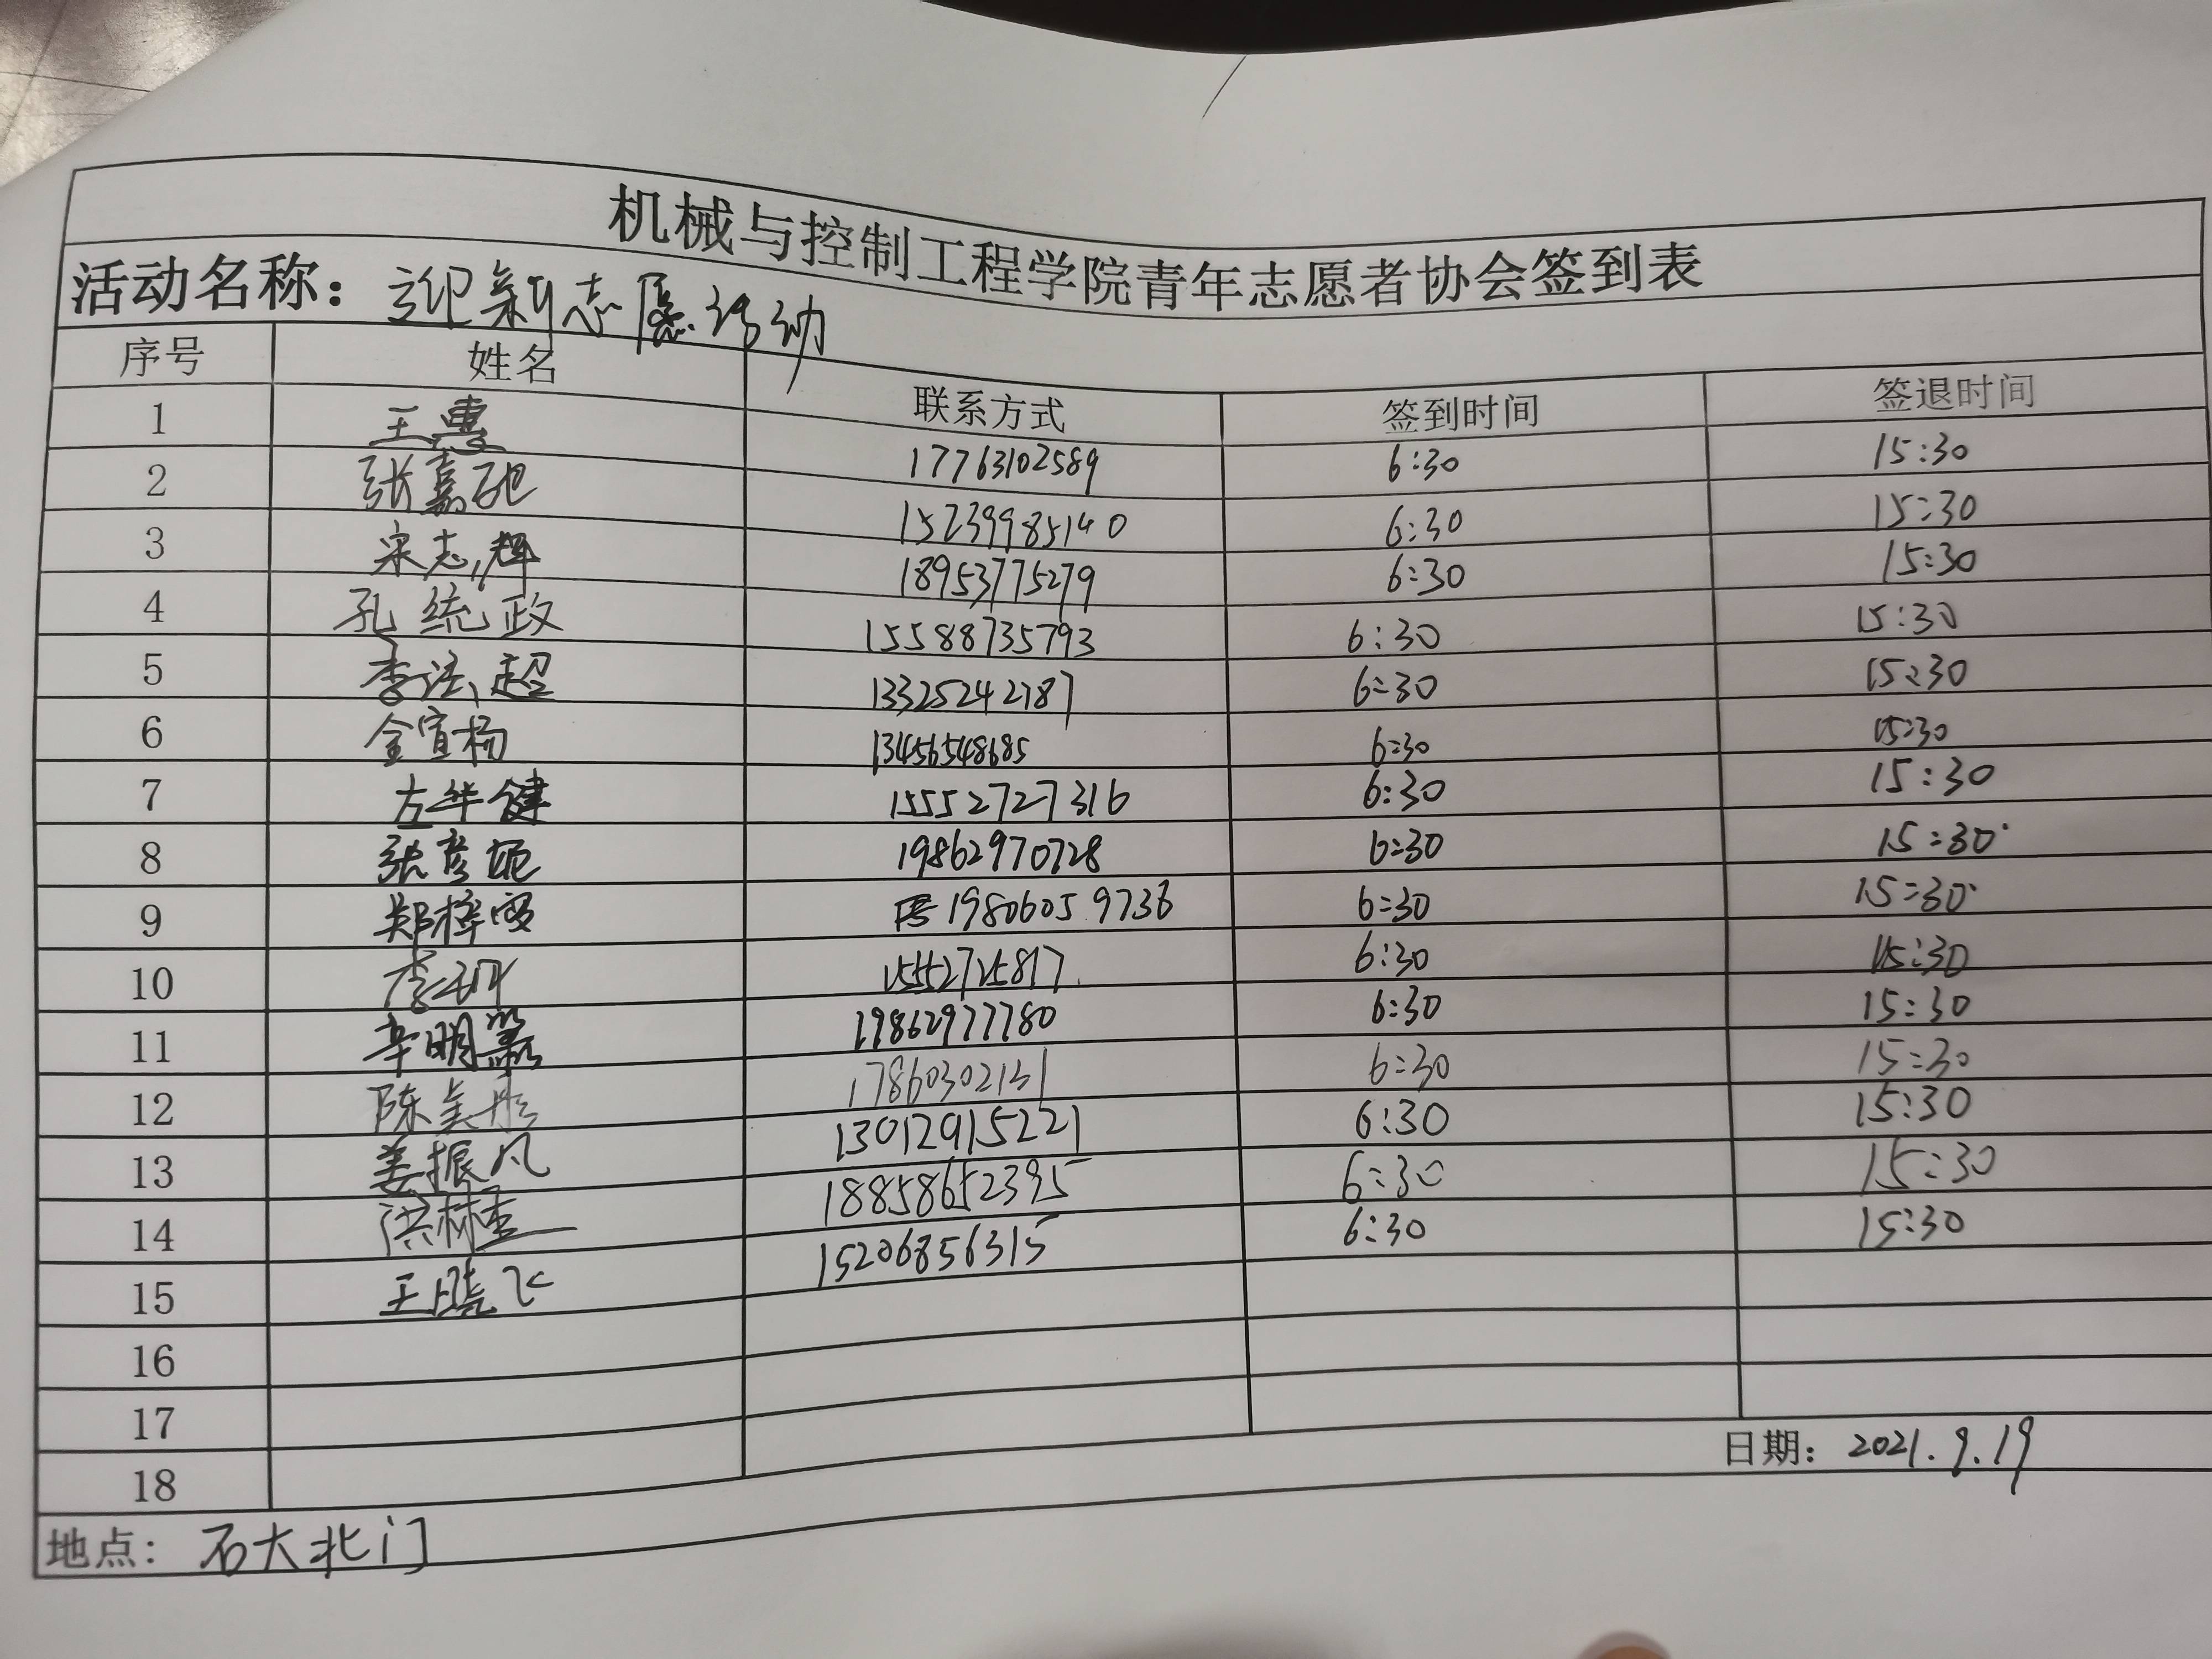 机械与控制工程学院青年志愿者协会签到表
活动名称：迎新志愿活动
序号 姓名 联系方式 签到时间 签退时间
1 王惠 17763102589 6:30 15:30
2 张嘉 15239985140 6:30 15:30
3 宋志辉 18953775279 6:30 15:30
4 孔统政 15588735793 6:30 15:30
5 李法超 13325242787 6:30 15:30
6 金宣杨 13456548685 6:30 15:30
7 左华健 15552727316 6:30 15:30
8 张彦妮 19862970728 6:30 15:30
9 郑梓雯 19806059736 6:30 15:30
10 李 15552725817 6:30 15:30
11 辛明 19862977780 6:30 15:30
12 陈美彤 17860302131 6:30 15:30
13 姜振凡 13012915221 6:30 15:30
14 洪林 18858652395 6:30 15:30
15 王晓飞 15206856315 6:30 15:30
16
17
18
日期：2021.9.19
地点：石大北门